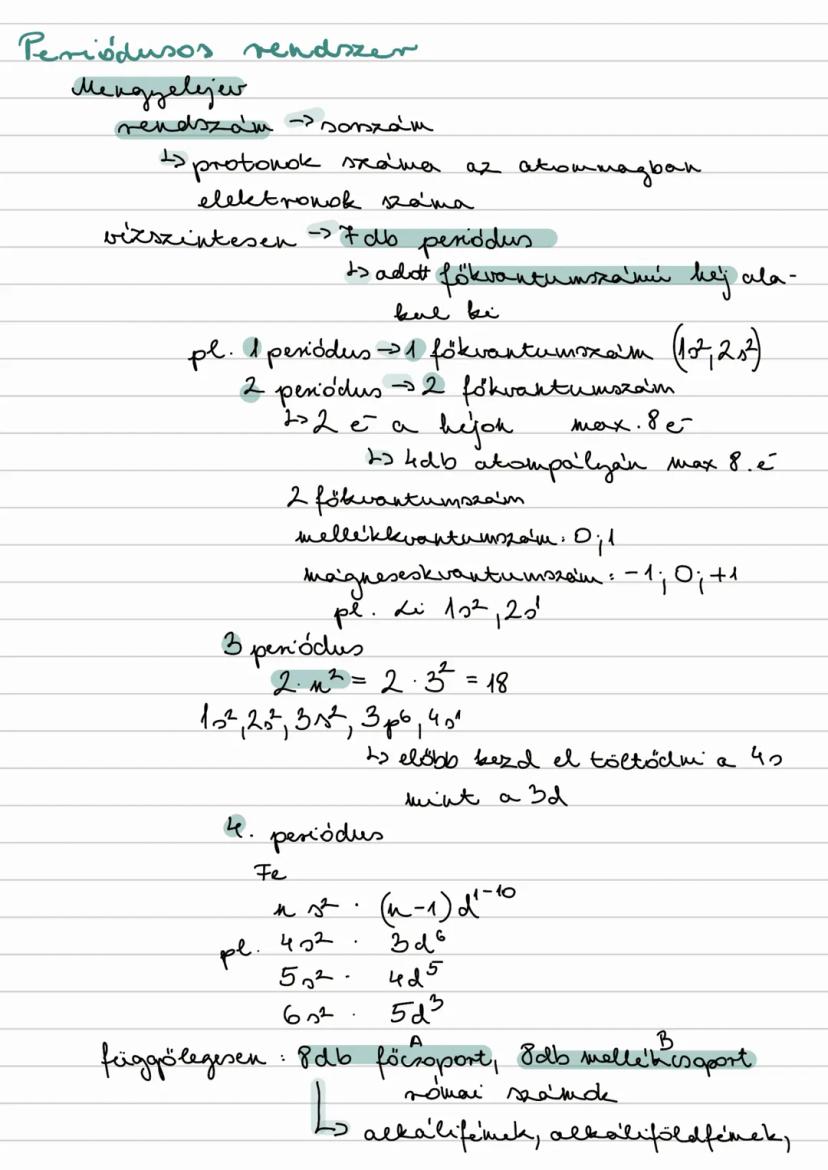 Periódusos rendszer
Mengyelejev
rendszám -> sorszám
↳ protonok száma az atommagban
elektronok száma
vízszintesen -> 7 db periódus
↳ adott főkvantumszámú héj ala-
kul ki
pl. 1 periódus -> 1 főkvantumszám (1s², 2s²)
2 periódus -> 2 főkvantumszám
↳ 2 e⁻ a héjon max. 8 e⁻
↳ 4db atompályán max 8. e⁻
2 főkvantumszám
mellékkvantumszám: 0; 1
mágneseskvantumszám: -1; 0; +1
pl. Li 1s², 2s¹
3 periódus
2·n² = 2·3² = 18
1s², 2s², 3s², 3p⁶, 4s¹
↳ előbb kezd el töltődni a 4s
mint a 3d
4. periódus
Fe
n s² · (n-1) d¹⁻¹⁰
pl. 4s² · 3d⁶
5s² · 4d⁵
6s² · 5d³
A B
függőlegesen: 8db főcsoport, 8db mellékcsoport
római számok
↳ alkálifémek, alkáliföldfémek,